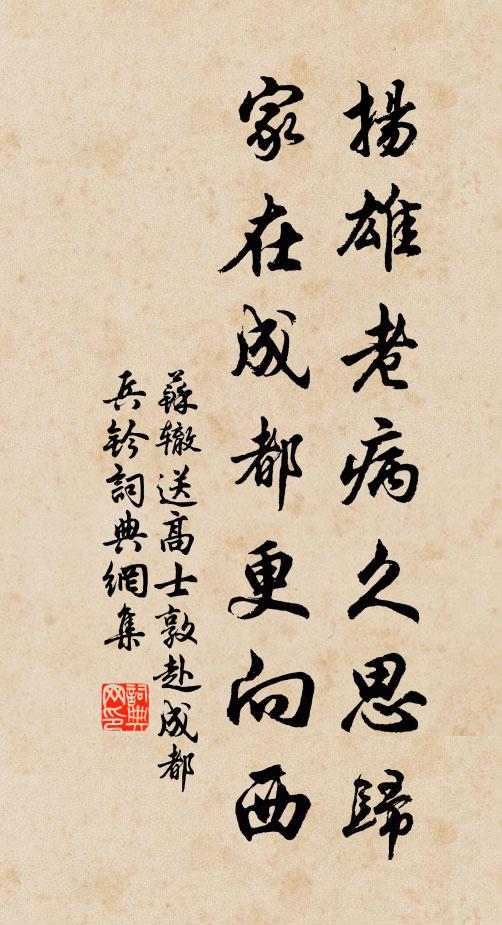 揚雄老病久思歸
家在成都更向西
蘇辙送高士敦赴成都
兵鈴詞典網集
詞典网印